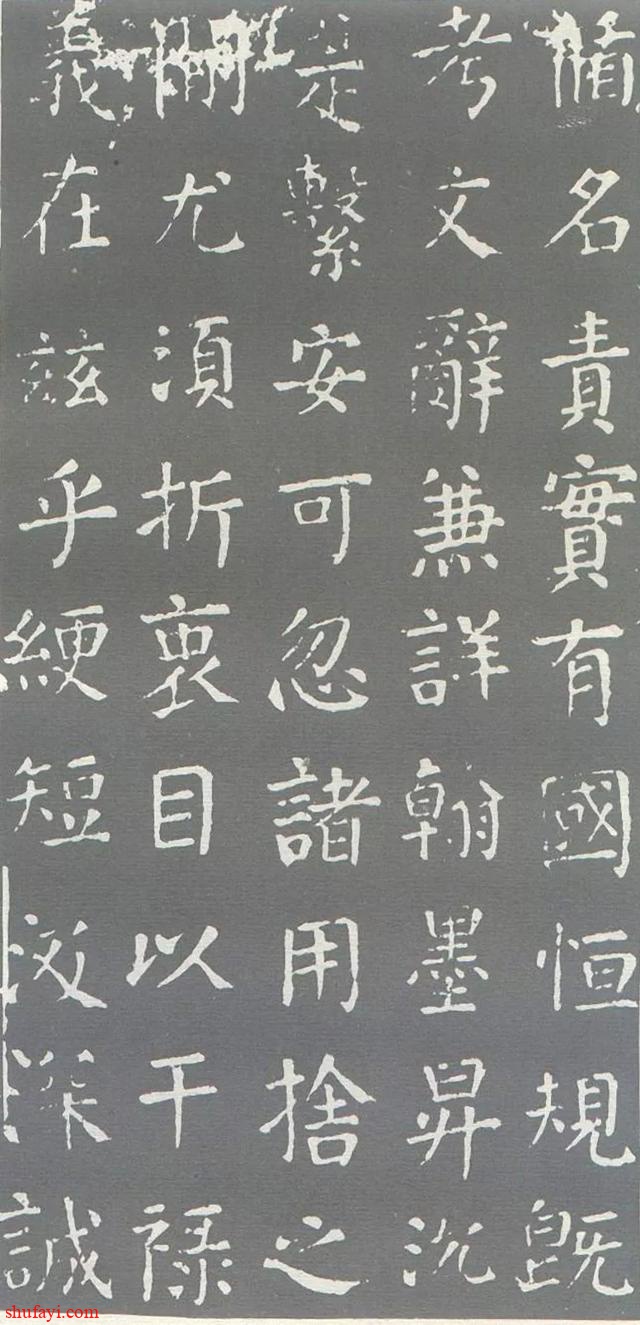 循名責實有國恒規既
考文辭兼詳翰墨昇沉
是繫安可忽諸用捨之
閒尤須折衷目以干祿
義在茲乎綆短汲深誠
shufayi.com